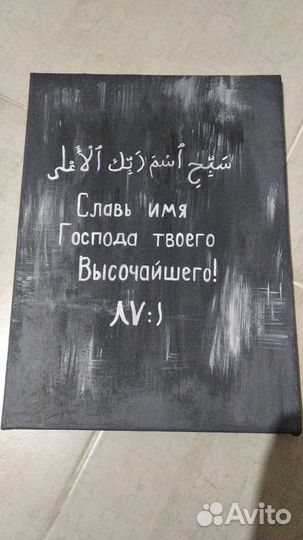 سَبِّحِ ٱسْمَ رَبِّكَ ٱلْأَعْلَى
Славь имя
Господа твоего
Высочайшего!
٨٧:١
Avito